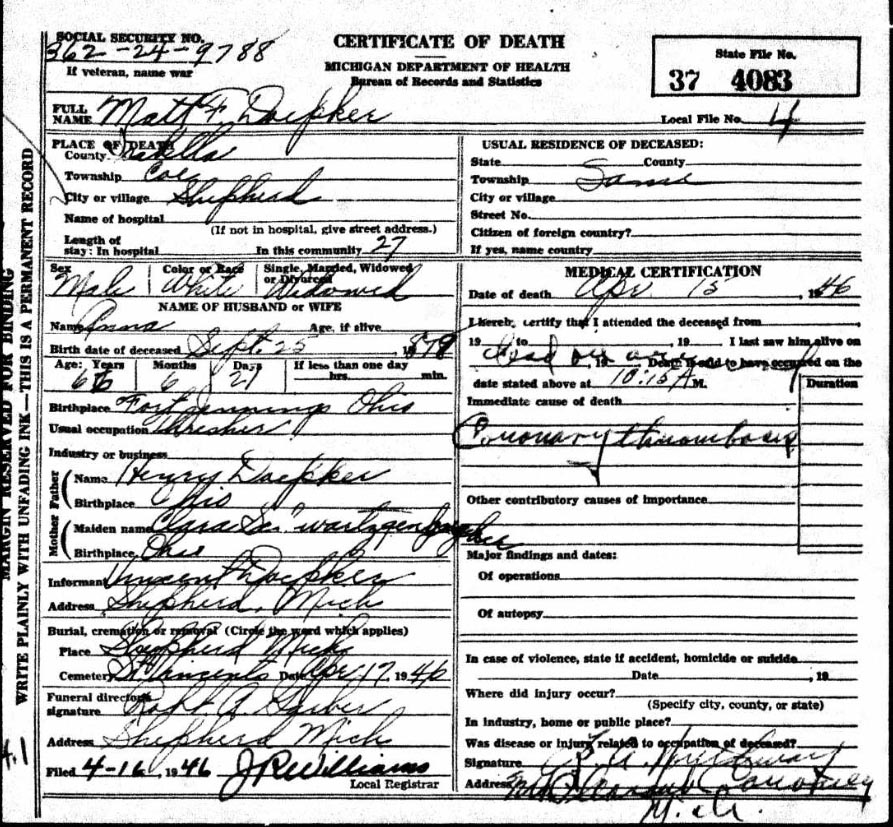 SOCIAL SECURITY NO.
362-24-9788
If veteran, name war
CERTIFICATE OF DEATH
MICHIGAN DEPARTMENT OF HEALTH
Bureau of Records and Statistics
State File No.
37 4083
FULL NAME Matt F. Doepker
Local File No. 4
PLACE OF DEATH
County Isabella
Township Coe
City or village Shepherd
Name of hospital
(If not in hospital, give street address.)
Length of stay: In hospital In this community 27
USUAL RESIDENCE OF DECEASED:
State County
Township Same
City or village
Street No.
Citizen of foreign country?
If yes, name country
Sex Male
Color or Race White
Single, Married, Widowed or Divorced Widowed
NAME OF HUSBAND or WIFE
Name Anna Age, if alive
Birth date of deceased Sept. 25 1879
Age: Years 66 Months 6 Days 21 If less than one day hrs. min.
Birthplace Fort Jennings Ohio
Usual occupation Thresher
Industry or business
Father
Name Henry Doepker
Birthplace Ohio
Mother
Maiden name Clara
Birthplace Ohio
Informant Vincent Doepker
Address Shepherd, Mich
Burial, cremation or removal (Circle the word which applies)
Place Shepherd Mich
Cemetery St Vincents Date Apr 17, 1946
Funeral director's signature
Address Shepherd Mich
Filed 4-16, 1946 J R Williams
Local Registrar
MEDICAL CERTIFICATION
Date of death Apr 15, 1946
I hereby certify that I attended the deceased from
19 to , 19 . I last saw him alive on
dead on , 19 Death is said to have occurred on the
date stated above at 10:15 A M.
Duration
Immediate cause of death
Coronary thrombosis
Other contributory causes of importance
Major findings and dates:
Of operations
Of autopsy
In case of violence, state if accident, homicide or suicide
Date , 19
Where did injury occur?
(Specify city, county, or state)
In industry, home or public place?
Was disease or injury related to occupation of deceased?
Signature
Address Mt Pleasant Coroner
Mich.
MARGIN RESERVED FOR BINDING
WRITE PLAINLY WITH UNFADING INK—THIS IS A PERMANENT RECORD